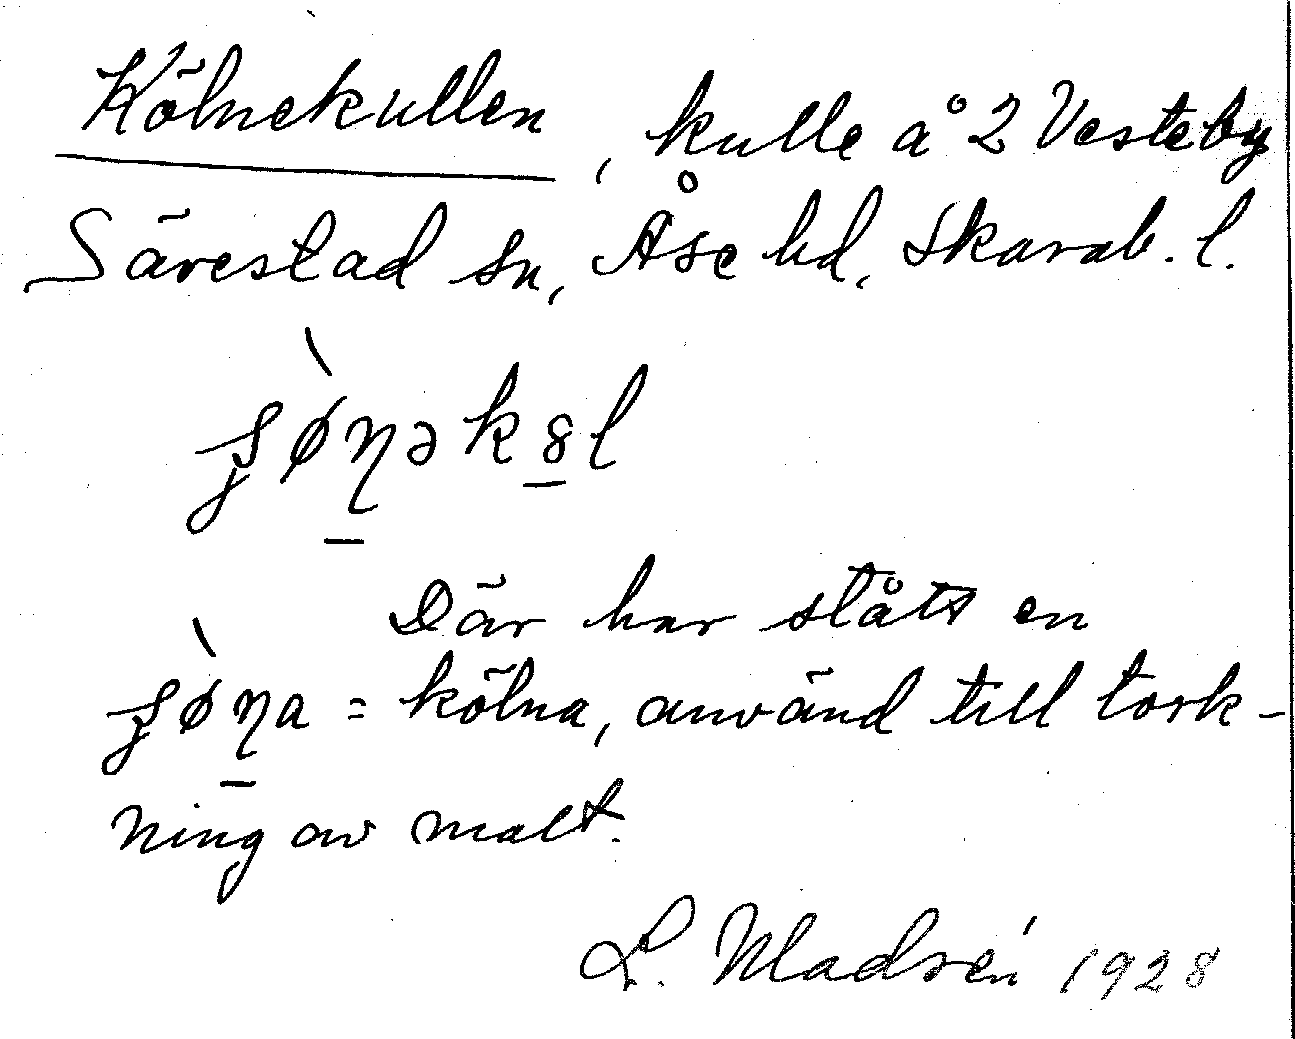 Kölnekullen, kulle å 2 Vesteby
Särestad sn, Åse hd, Skarab. l.
ʂø̀ŋək8l
Där har stått en
ʂø̀ŋa = kölna, använd till tork-
ning av malt.
L. Madsén 1928